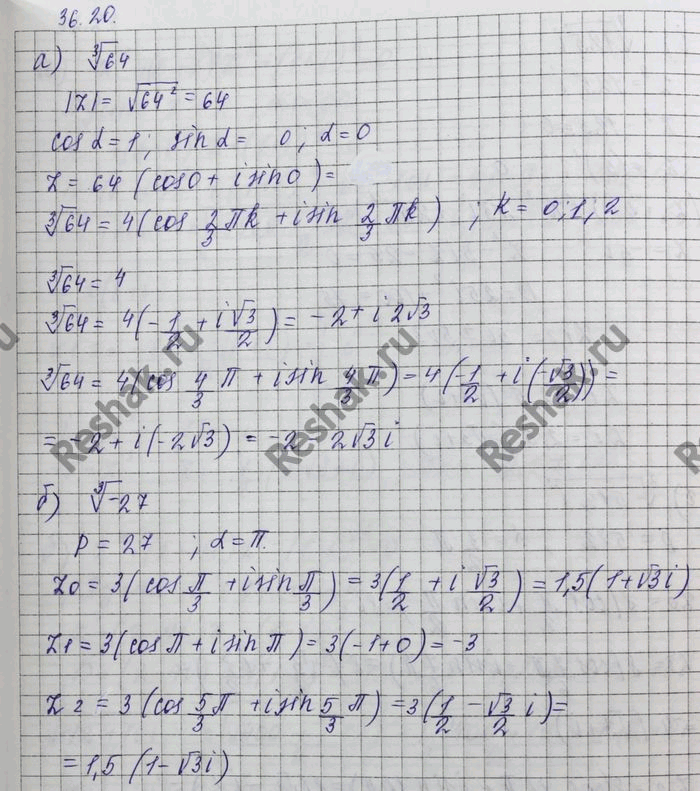 36.20.
а) ∛64
|Z| = √64² = 64
cos α = 1; sin α = 0; α = 0
Z = 64 (cos0 + i sin0) =
∛64 = 4(cos 2/3 πk + i sin 2/3 πk) ; k = 0; 1; 2
∛64 = 4
∛64 = 4(-1/2 + i √3/2) = -2 + i 2√3
∛64 = 4(cos 4/3 π + i sin 4/3 π) = 4(-1/2 + i(-√3/2)) =
= -2 + i(-2√3) = -2 - 2√3 i
б) ∛-27
p = 27 ; α = π.
Z0 = 3(cos π/3 + i sin π/3) = 3(1/2 + i √3/2) = 1,5(1+√3i)
Z1 = 3(cos π + i sin π) = 3(-1+0) = -3
Z2 = 3 (cos 5/3 π + i sin 5/3 π) = 3(1/2 - √3/2 i) =
= 1,5 (1-√3i)
Reshak.ru
Reshak.ru
Reshak.ru